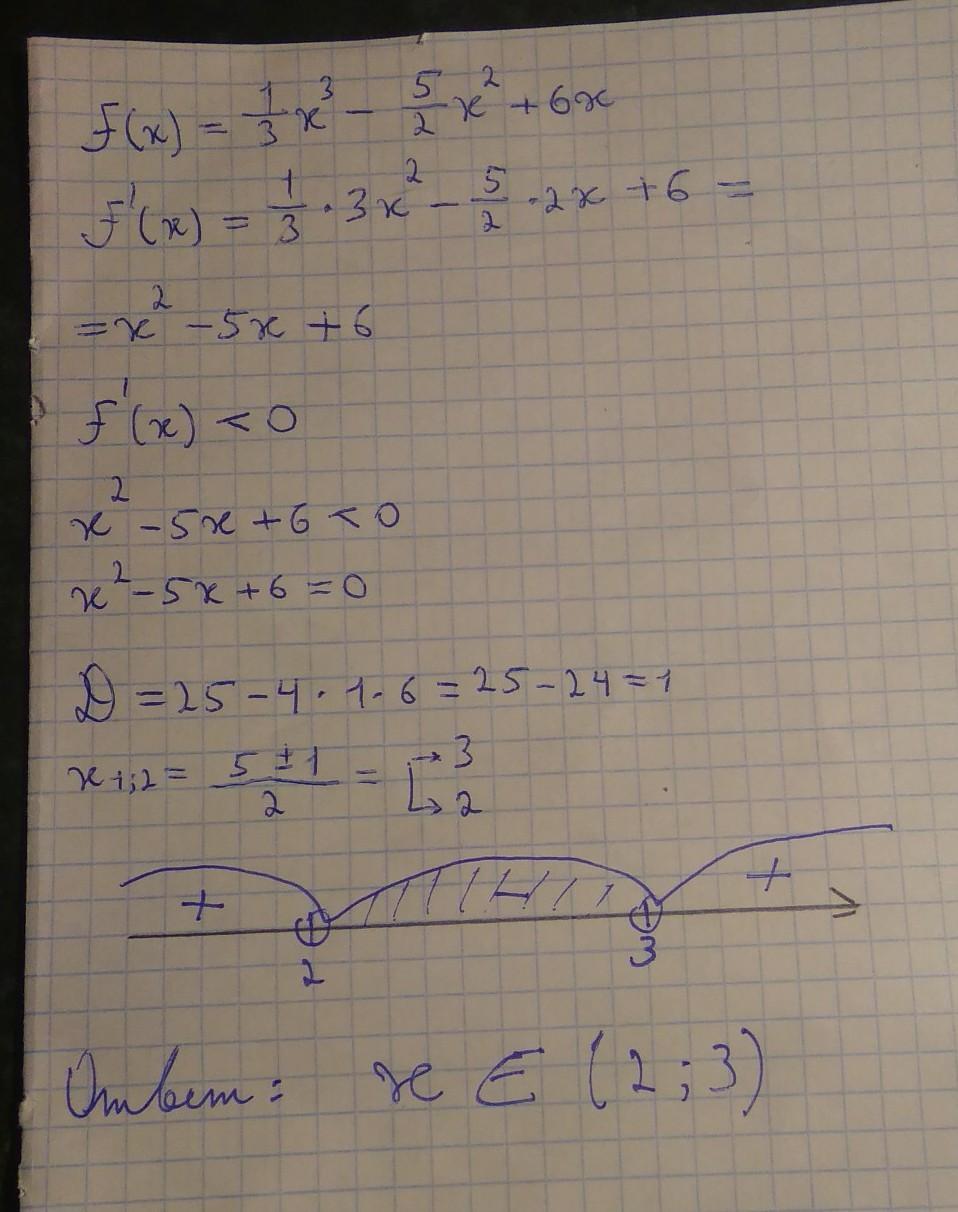 f(x) = 1/3 x³ − 5/2 x² + 6x
f'(x) = 1/3 · 3x² − 5/2 · 2x + 6 =
= x² − 5x + 6
f'(x) < 0
x² − 5x + 6 < 0
x² − 5x + 6 = 0
D = 25 − 4 · 1 · 6 = 25 − 24 = 1
x₁;₂ = (5 ± 1)/2 = [→ 3 → 2
+ − +
2 3
Ответ: x ∈ (2; 3)